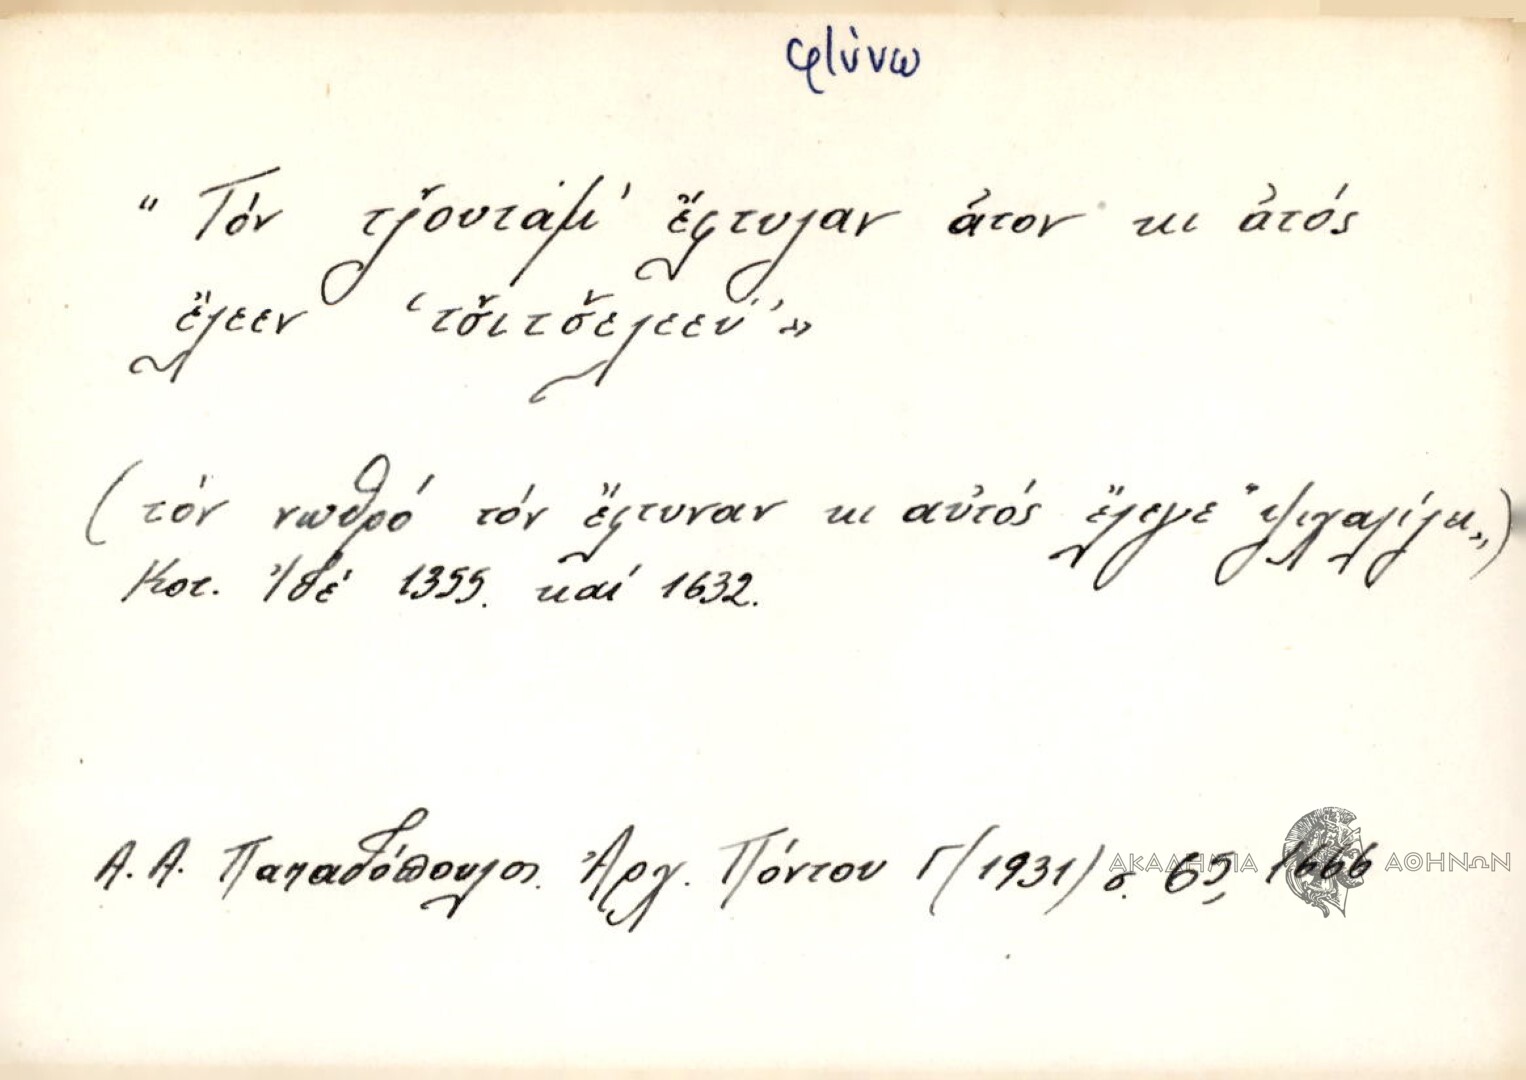 φτύνω
"Τόν τζ̌ουτάμ' ἔφτυλαν ἀτον κι ἀτός
ἔλεεν 'τσ̌ιτσ̌ελεεύ'»
(τόν νωθρό τόν ἔφτυναν κι αὐτός ἔλεγε "ψιχαλίζει»)
Κοτ. Ἰδέ 1355. καί 1632.
Α. Α. Παπαδόπουλος. Ἀρχ. Πόντου Γ (1931) σ. 65, 1666
ΑΚΑΔΗΜΙΑ ΑΘΗΝΩΝ